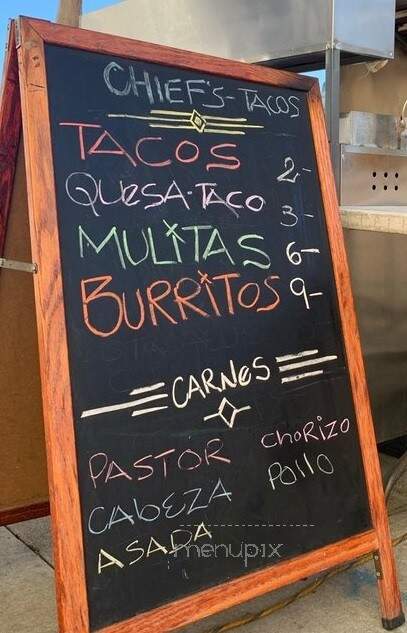 CHIEF'S-TACOS
TACOS 2-
QUESA-TACO 3-
MULITAS 6-
BURRITOS 9-
CARNES
PASTOR choRizo
CABEZA Pollo
ASADA
menupix